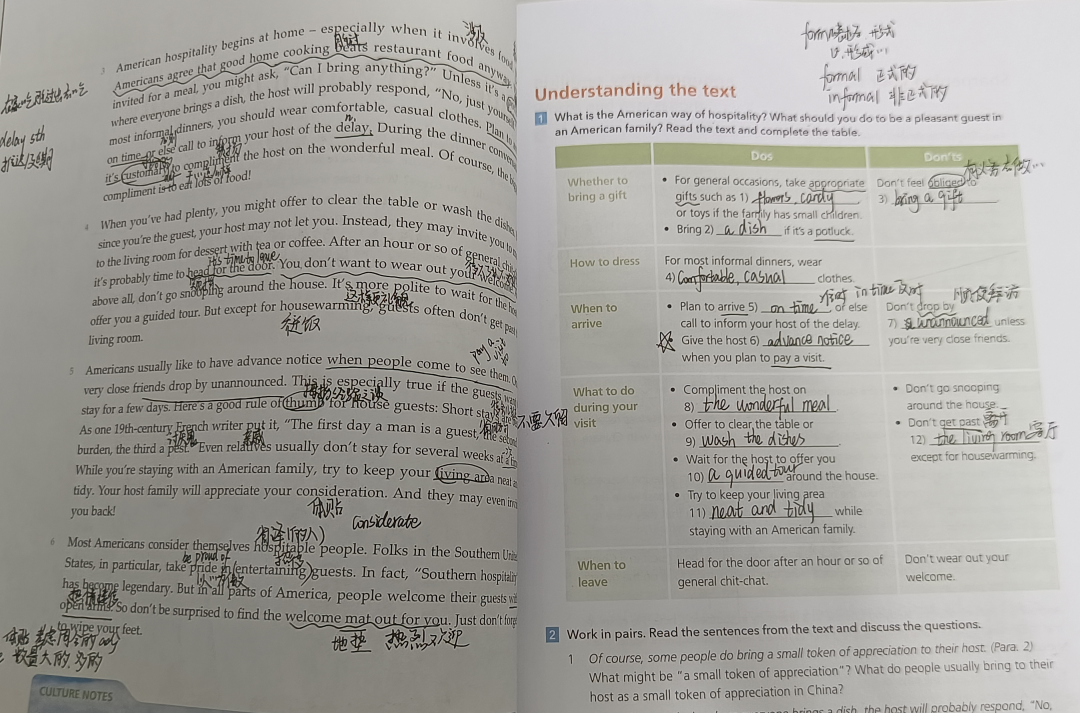 3 American hospitality begins at home – especially when it involves food
Americans agree that good home cooking beats restaurant food anyway
invited for a meal, you might ask, "Can I bring anything?" Unless it's a
where everyone brings a dish, the host will probably respond, "No, just yourself
most informal dinners, you should wear comfortable, casual clothes. Plan to
on time or else call to inform your host of the delay. During the dinner
it's customary to compliment the host on the wonderful meal. Of course, the
compliment is to eat lots of food!
delay sth
4 When you've had plenty, you might offer to clear the table or wash the dishes
since you're the guest, your host may not let you. Instead, they may invite you to
to the living room for dessert with tea or coffee. After an hour or so of general
it's time to leave
it's probably time to head for the door. You don't want to wear out your welcome
above all, don't go snooping around the house. It's more polite to wait for the
offer you a guided tour. But except for housewarming, guests often don't get past
living room.
pay a visit
5 Americans usually like to have advance notice when people come to see them.
very close friends drop by unannounced. This is especially true if the guests want
stay for a few days. Here's a good rule of thumb for house guests: Short stays are
As one 19th-century French writer put it, "The first day a man is a guest, the second
burden, the third a pest." Even relatives usually don't stay for several weeks at
While you're staying with an American family, try to keep your living area neat
tidy. Your host family will appreciate your consideration. And they may even
you back!
体贴 considerate
6 Most Americans consider themselves hospitable people. Folks in the Southern
be proud of
States, in particular, take pride in entertaining guests. In fact, "Southern hospitality
has become legendary. But in all parts of America, people welcome their guests
open arms. So don't be surprised to find the welcome mat out for you. Just don't
to wipe your feet.
地垫 热烈欢迎
CULTURE NOTES
形式
v. 形成…
formal 正式的
informal 非正式的
Understanding the text
1 What is the American way of hospitality? What should you do to be a pleasant guest in
an American family? Read the text and complete the table.
Dos Don'ts
Whether to bring a gift
• For general occasions, take appropriate
gifts such as 1) flowers, candy
or toys if the family has small children.
• Bring 2) a dish if it's a potluck.
Don't feel obliged to
3) bring a gift
How to dress
For most informal dinners, wear
4) Comfortable, casual clothes.
When to arrive
• Plan to arrive 5) on time, or else
call to inform your host of the delay.
• Give the host 6) advance notice
when you plan to pay a visit.
in time 及时
Don't drop by
7) unannounced unless
you're very close friends.
What to do during your visit
• Compliment the host on
8) the wonderful meal
• Offer to clear the table or
9) wash the dishes
• Wait for the host to offer you
10) a guided tour around the house.
• Try to keep your living area
11) neat and tidy while
staying with an American family.
• Don't go snooping
around the house.
• Don't get past
12) the living room 客厅
except for housewarming.
When to leave
Head for the door after an hour or so of
general chit-chat.
Don't wear out your
welcome.
2 Work in pairs. Read the sentences from the text and discuss the questions.
1 Of course, some people do bring a small token of appreciation to their host. (Para. 2)
What might be "a small token of appreciation"? What do people usually bring to their
host as a small token of appreciation in China?
brings a dish, the host will probably respond, "No,